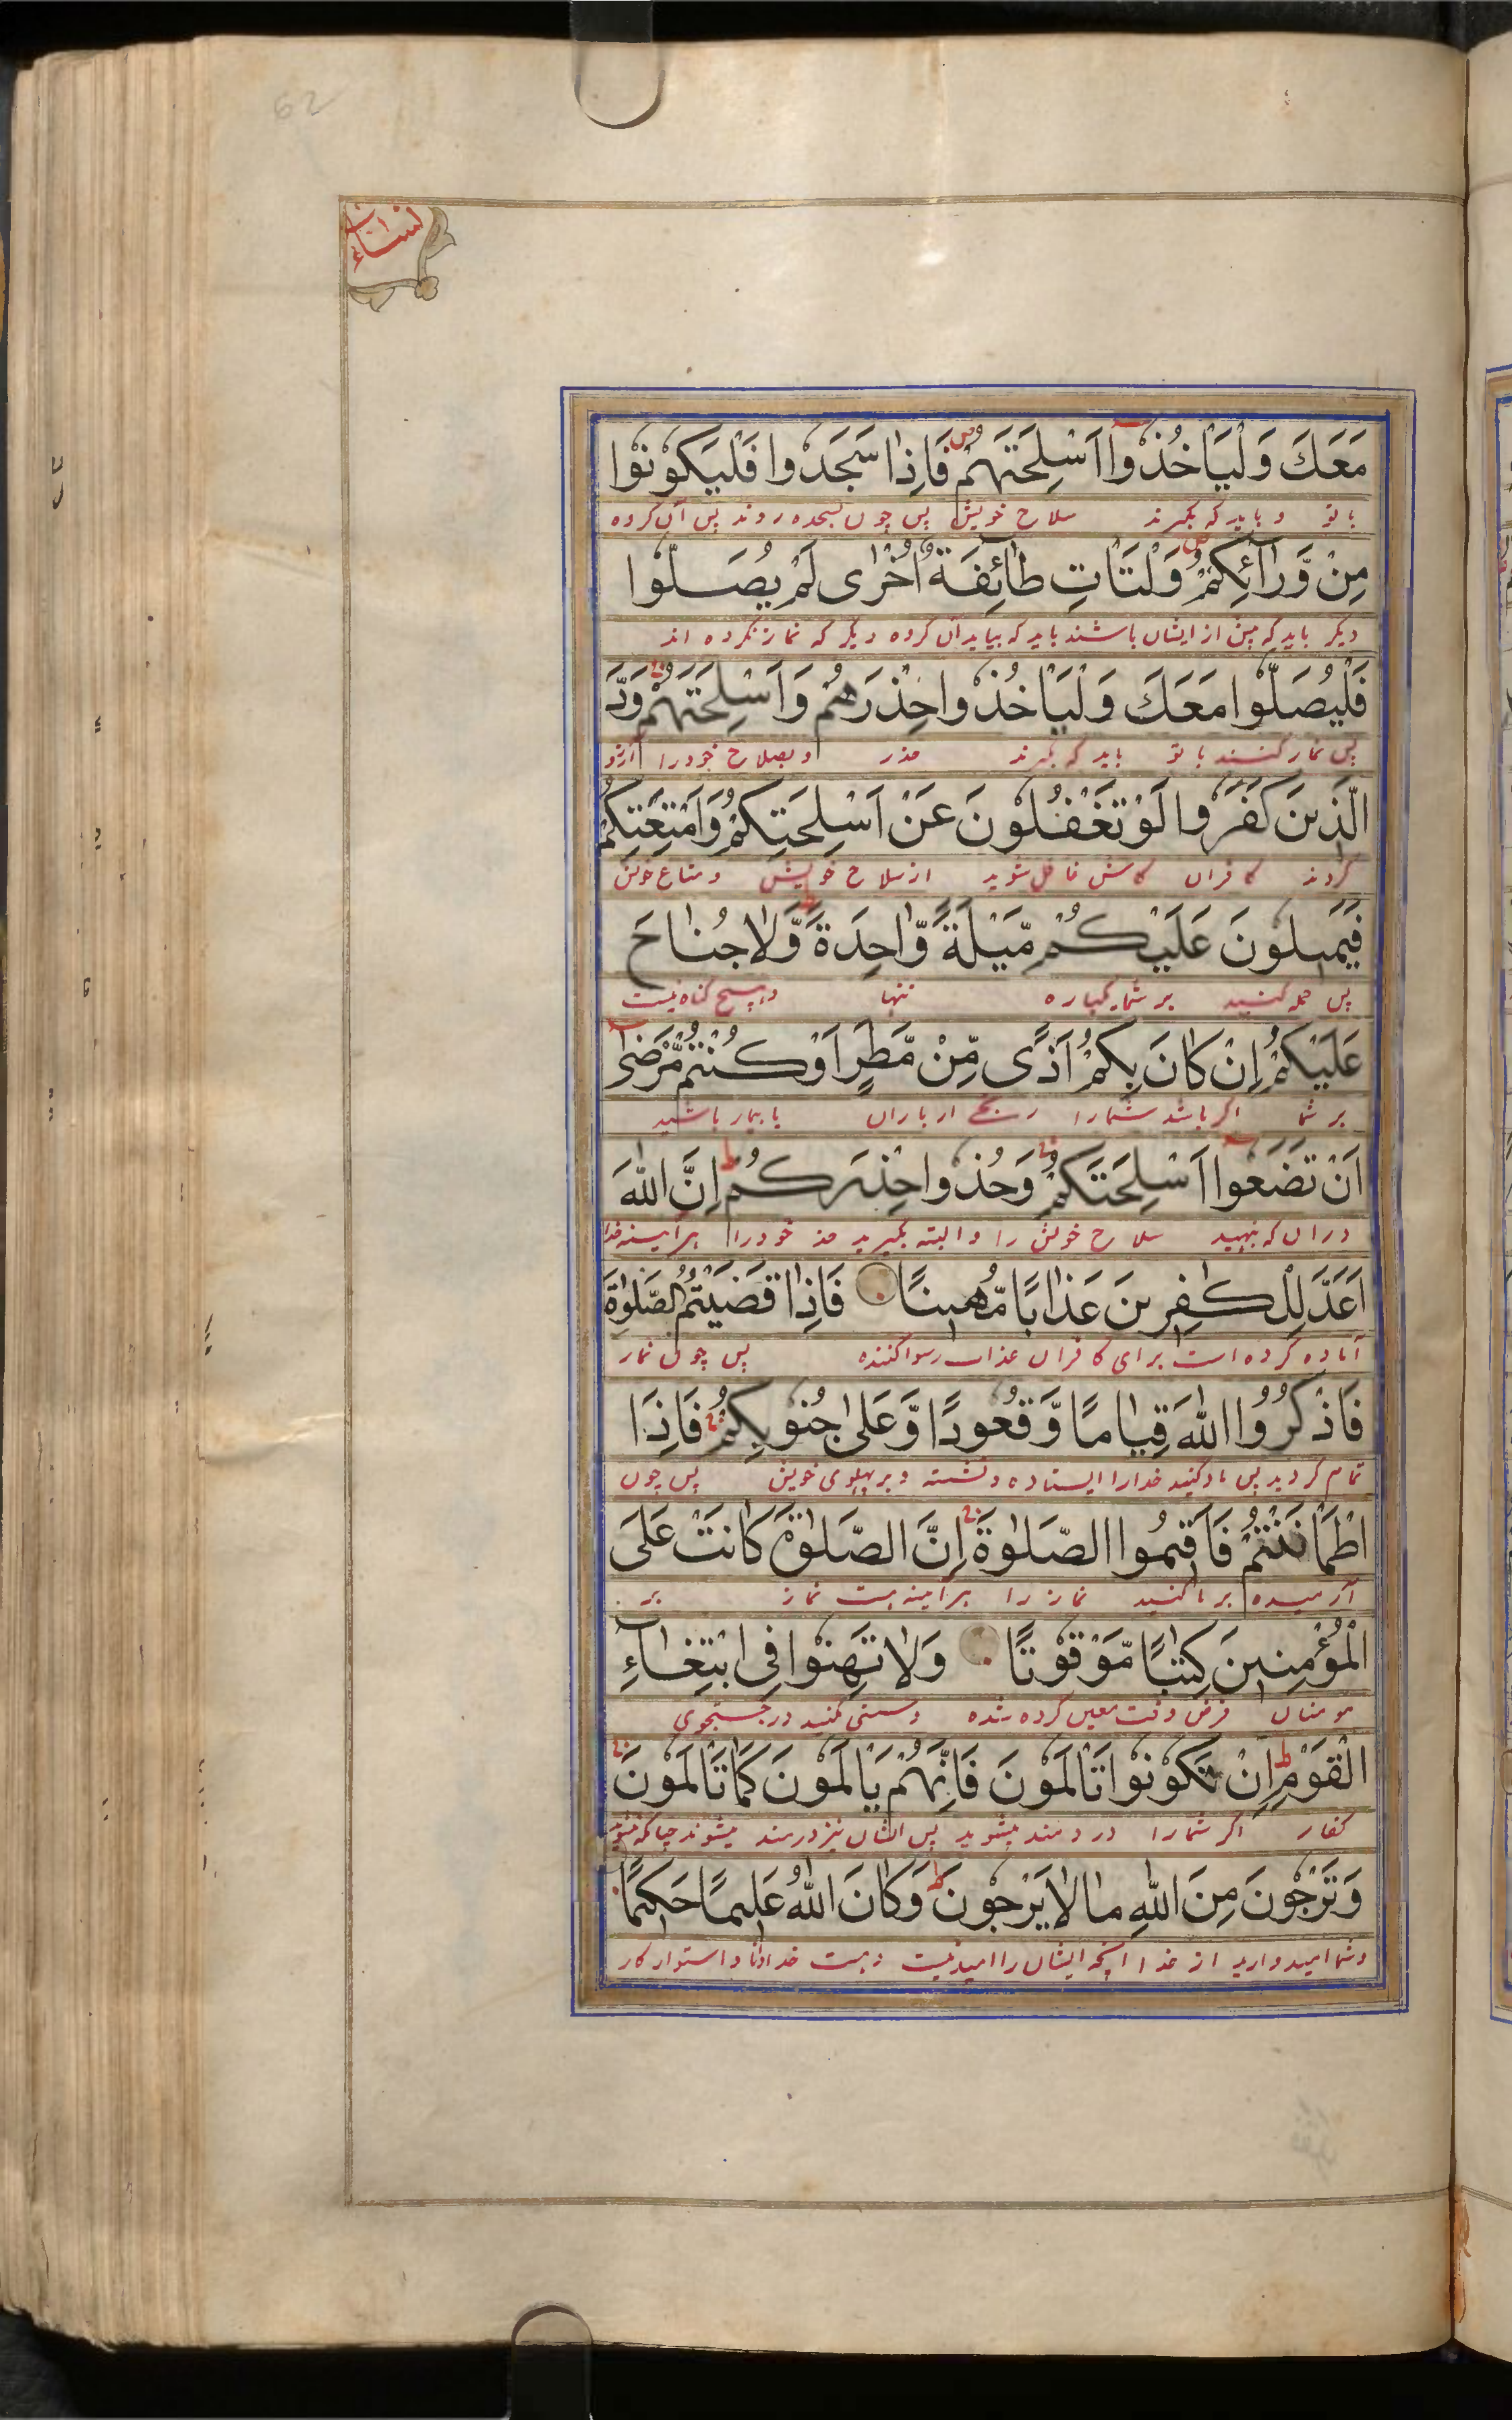 62
النساء
مَعَكَ وَلْيَاْخُذُوْٓا اَسْلِحَتَهُمْ فَاِذَا سَجَدُوْا فَلْيَكُوْنُوْا
با تو و باید که بگیرند سلاح خویش پس چون بسجده روند پس آن کروه
مِنْ وَّرَآئِكُمْ وَلْتَاْتِ طَآئِفَةٌ اُخْرٰى لَمْ يُصَلُّوْا
دیکر باید که پس از ایشان باشند باید که بیاید آن کروه دیکر که نماز نکرده اند
فَلْيُصَلُّوْا مَعَكَ وَلْيَاْخُذُوْا حِذْرَهُمْ وَاَسْلِحَتَهُمْ وَدَّ
پس نماز کنند با تو باید که بگیرند حذر و سلاح خود را آرزو
الَّذِيْنَ كَفَرُوْا لَوْ تَغْفُلُوْنَ عَنْ اَسْلِحَتِكُمْ وَاَمْتِعَتِكُمْ
کردند کافران کاش غافل شوید از سلاح خویش و متاع خویش
فَيَمِيْلُوْنَ عَلَيْكُمْ مَّيْلَةً وَّاحِدَةً وَّلَا جُنَاحَ
پس حمله کنند بر شما یکباره تنها و هیچ کناه نیست
عَلَيْكُمْ اِنْ كَانَ بِكُمْ اَذًى مِّنْ مَّطَرٍ اَوْ كُنْتُمْ مَّرْضٰٓى
بر شما اکر باشد شما را رنجی از باران یا بیمار باشید
اَنْ تَضَعُوْٓا اَسْلِحَتَكُمْ وَخُذُوْا حِذْرَكُمْ اِنَّ اللّٰهَ
در آن که بنهید سلاح خویش را و البته بگیرید حذر خود را هر آیینه خدا
اَعَدَّ لِلْكٰفِرِيْنَ عَذَابًا مُّهِيْنًا فَاِذَا قَضَيْتُمُ الصَّلٰوةَ
آماده کرده است برای کافران عذاب رسوا کننده پس چون نماز
فَاذْكُرُوا اللّٰهَ قِيَامًا وَّقُعُوْدًا وَّعَلٰى جُنُوْبِكُمْ فَاِذَا
تمام کردید پس یاد کنید خدا را ایستاده و نشسته و بر پهلوی خویش پس چون
اطْمَاْنَنْتُمْ فَاَقِيْمُوا الصَّلٰوةَ اِنَّ الصَّلٰوةَ كَانَتْ عَلَى
آرمیده بر پا کنید نماز را هر آیینه هست نماز بر
الْمُؤْمِنِيْنَ كِتٰبًا مَّوْقُوْتًا وَلَا تَهِنُوْا فِى ابْتِغَآءِ
مومنان فرض وقت معین کرده شده و سستی مکنید در جستجوی
الْقَوْمِ اِنْ تَكُوْنُوْا تَاْلَمُوْنَ فَاِنَّهُمْ يَاْلَمُوْنَ كَمَا تَاْلَمُوْنَ
کفار اکر شما را دردمند میشوید پس ایشان نیز دردمند میشوند چنانکه میشوید
وَتَرْجُوْنَ مِنَ اللّٰهِ مَا لَا يَرْجُوْنَ وَكَانَ اللّٰهُ عَلِيْمًا حَكِيْمًا
و شما امید دارید از خدا آنچه ایشان را امید نیست و هست خدا دانا و استوار کار